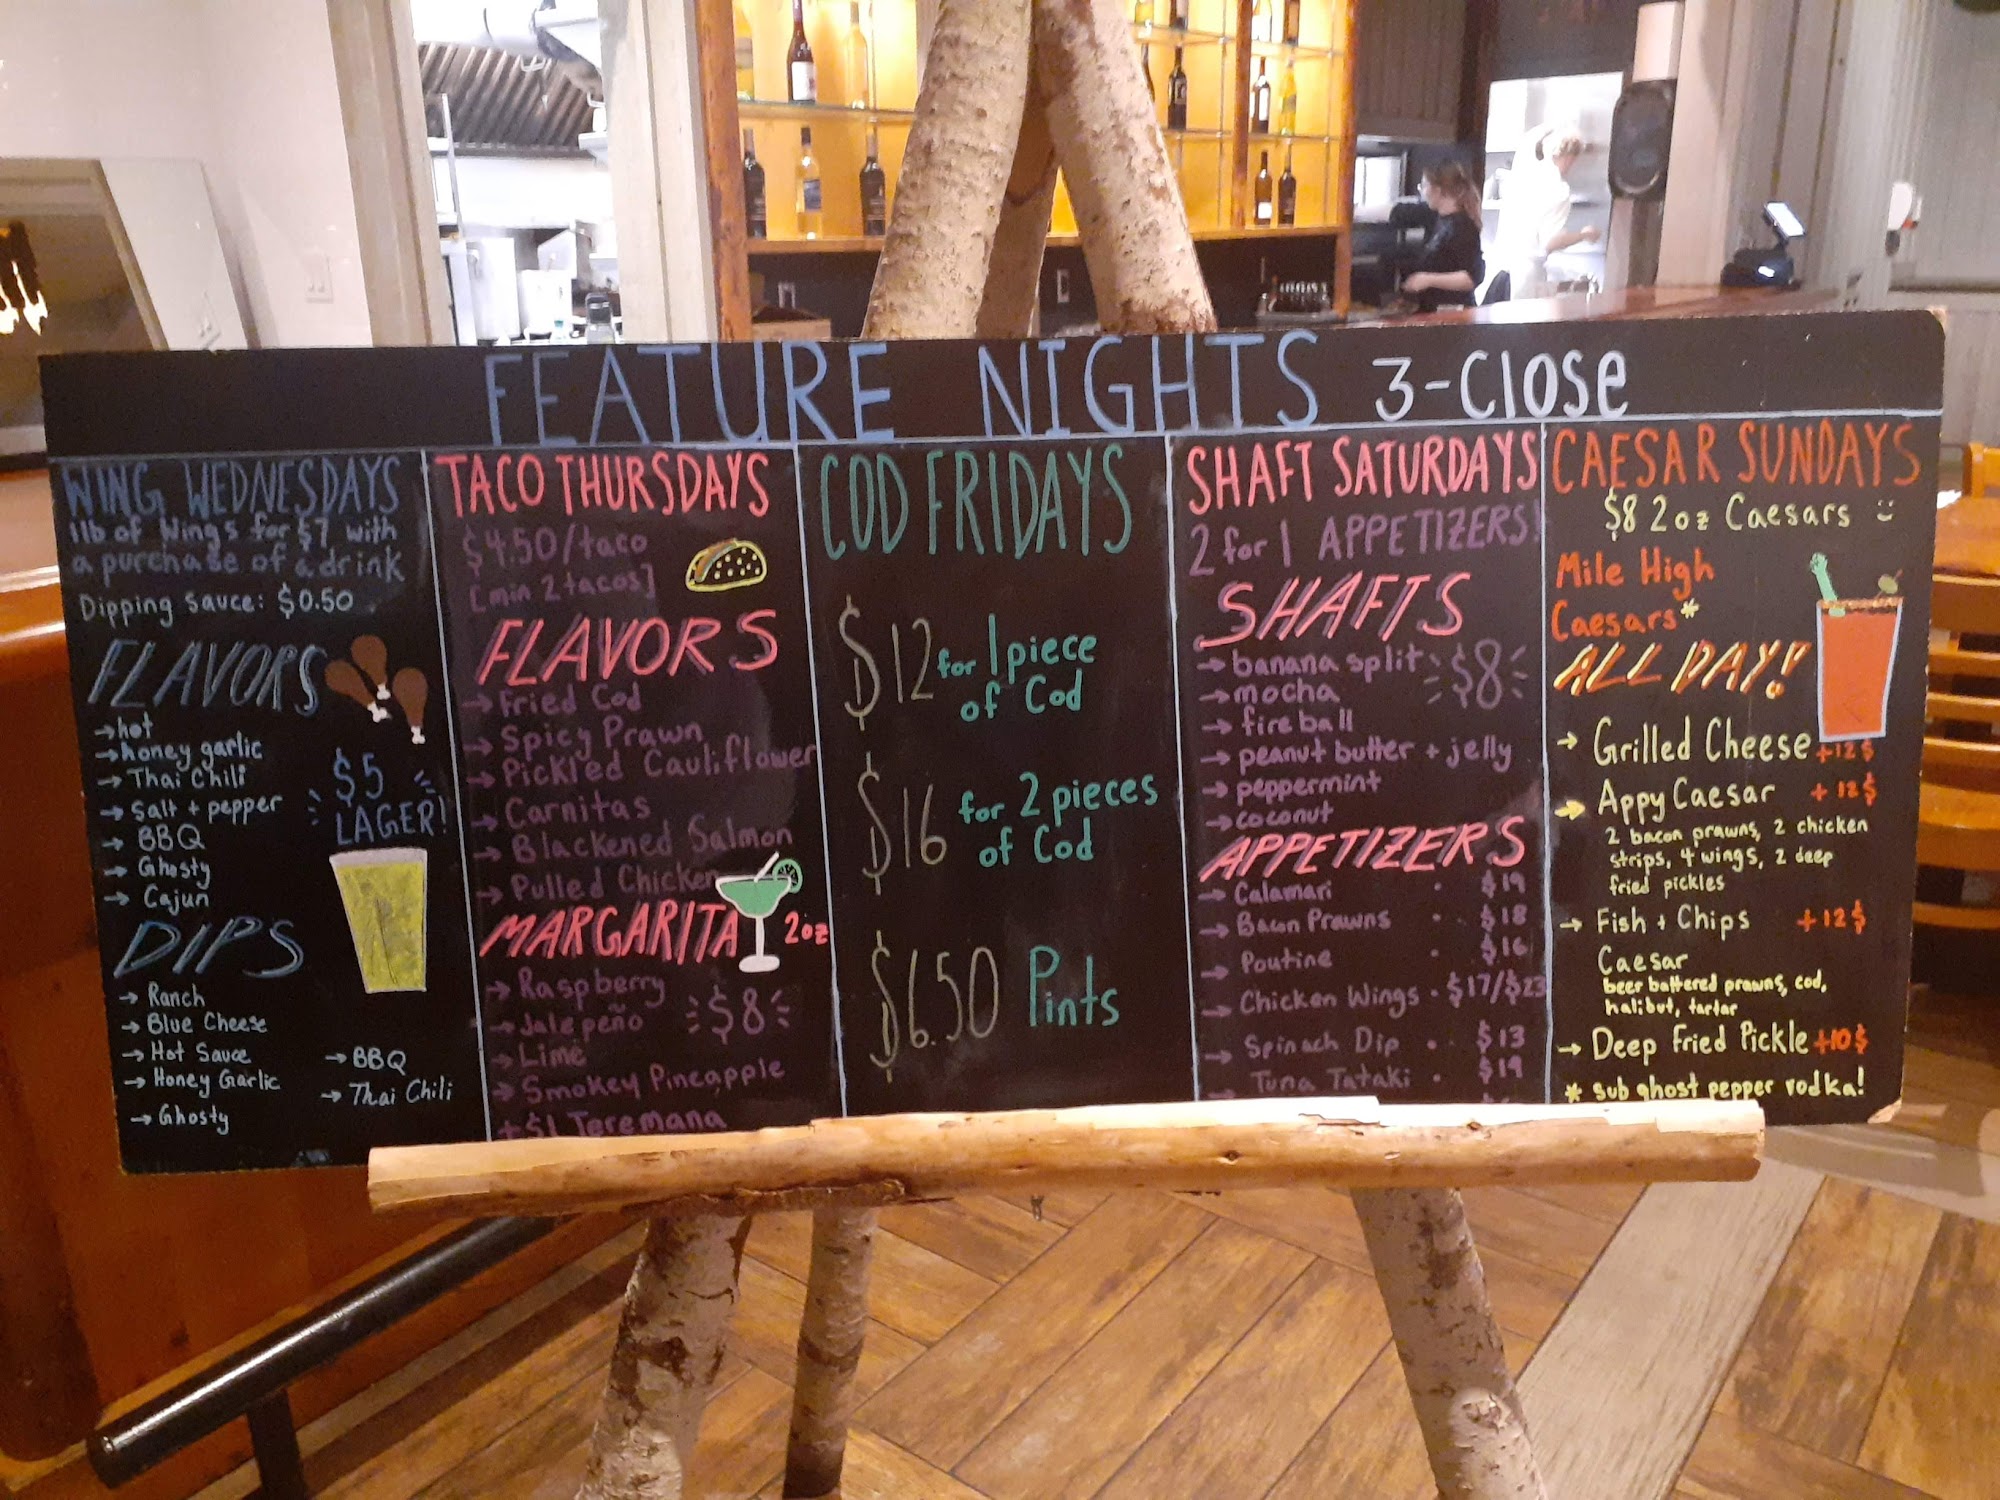 FEATURE NIGHTS 3-Close
WING WEDNESDAYS
1lb of Wings for $7 with
a purchase of a drink
Dipping sauce: $0.50
FLAVORS
→hot
→honey garlic
→Thai Chili
→Salt + pepper
→BBQ
→Ghosty
→Cajun
$5
LAGER!
DIPS
→Ranch
→Blue Cheese
→Hot Sauce
→Honey Garlic
→Ghosty
→BBQ
→Thai Chili
TACO THURSDAYS
$4.50/taco
[min 2 tacos]
FLAVORS
→Fried Cod
→Spicy Prawn
→Pickled Cauliflower
→Carnitas
→Blackened Salmon
→Pulled Chicken
MARGARITA 2oz
→Raspberry
→Jalepeño
→Lime
→Smokey Pineapple
+$1 Teremana
$8
COD FRIDAYS
$12 for 1 piece
of Cod
$16 for 2 pieces
of Cod
$6.50 Pints
SHAFT SATURDAYS
2 for 1 APPETIZERS!
SHAFTS
→banana split
→mocha
→fireball
→peanut butter + jelly
→peppermint
→coconut
$8
APPETIZERS
→Calamari . $19
→Bacon Prawns . $18
→Poutine . $16
→Chicken Wings . $17/$23
→Spinach Dip . $13
→Tuna Tataki . $19
CAESAR SUNDAYS
$8 2oz Caesars
Mile High
Caesars*
ALL DAY!
→Grilled Cheese +12$
→Appy Caesar +12$
2 bacon prawns, 2 chicken
strips, 4 wings, 2 deep
fried pickles
→Fish + Chips +12$
Caesar
beer battered prawns, cod,
halibut, tartar
→Deep Fried Pickle +10$
* sub ghost pepper vodka!